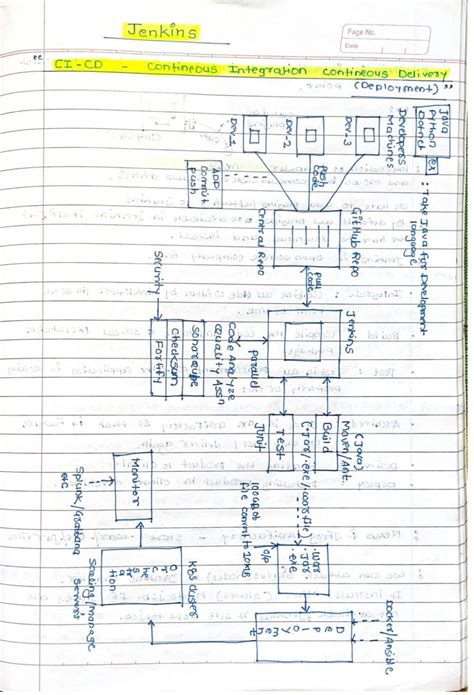 Jenkins
Page No.
Date
CI-CD - Contineous Integration contineous Delivery
(Deployment)"
Java
Python
Dotnet
ex : Take Java for Development
language
Developers
Machines
Dev-3
Dev-2
Dev-1
Push
code
ADD
Commit
Push
GitHub Repo
Central Repo
Pull
code
Jenkins
Parallel
Code Analyze
Quality Assn
Sonarqube
Checksum
Fortify
Security
(Java)
Maven/Ant.
(.jar/.exe/.war file)
Build
Test
Junit
100GB of
file convert to 10MB
O/P
.war
.jar
.exe
Docker/Ansible
Deployment
K8S cluster
Orchestration
Scaling/manage
servers
Monitor
Splunk/Grafana
etc